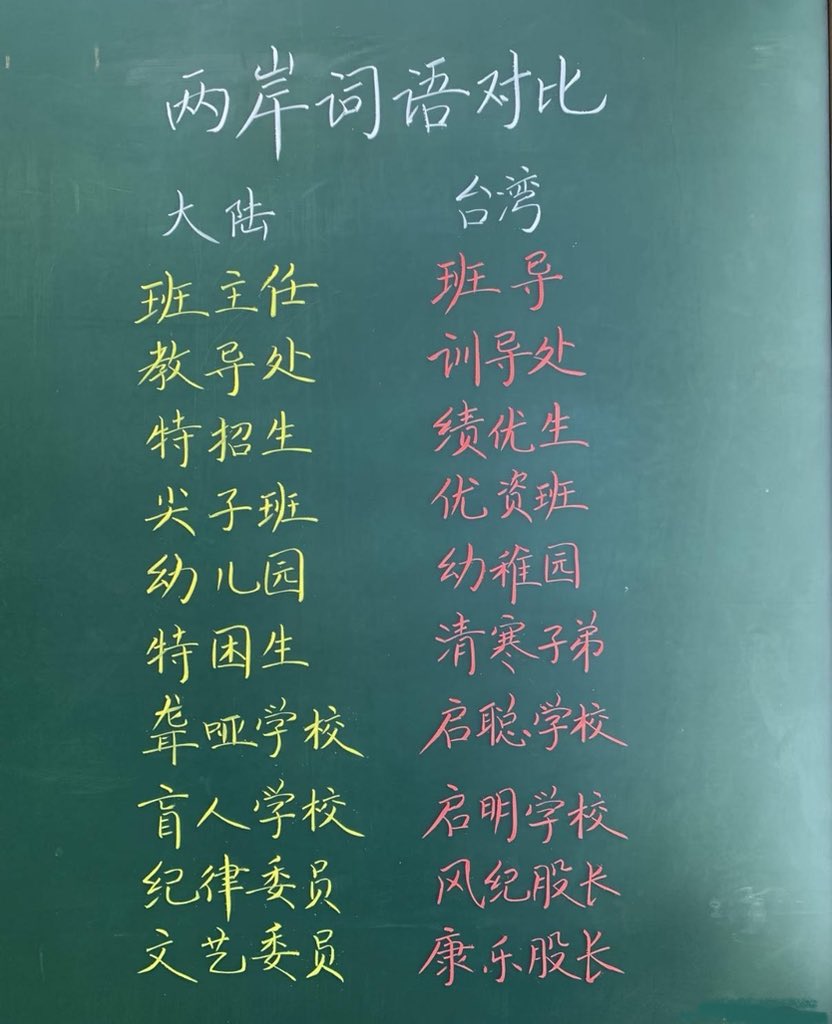 两岸词语对比
大陆 台湾
班主任 班导
教导处 训导处
特招生 绩优生
尖子班 优资班
幼儿园 幼稚园
特困生 清寒子弟
聋哑学校 启聪学校
盲人学校 启明学校
纪律委员 风纪股长
文艺委员 康乐股长